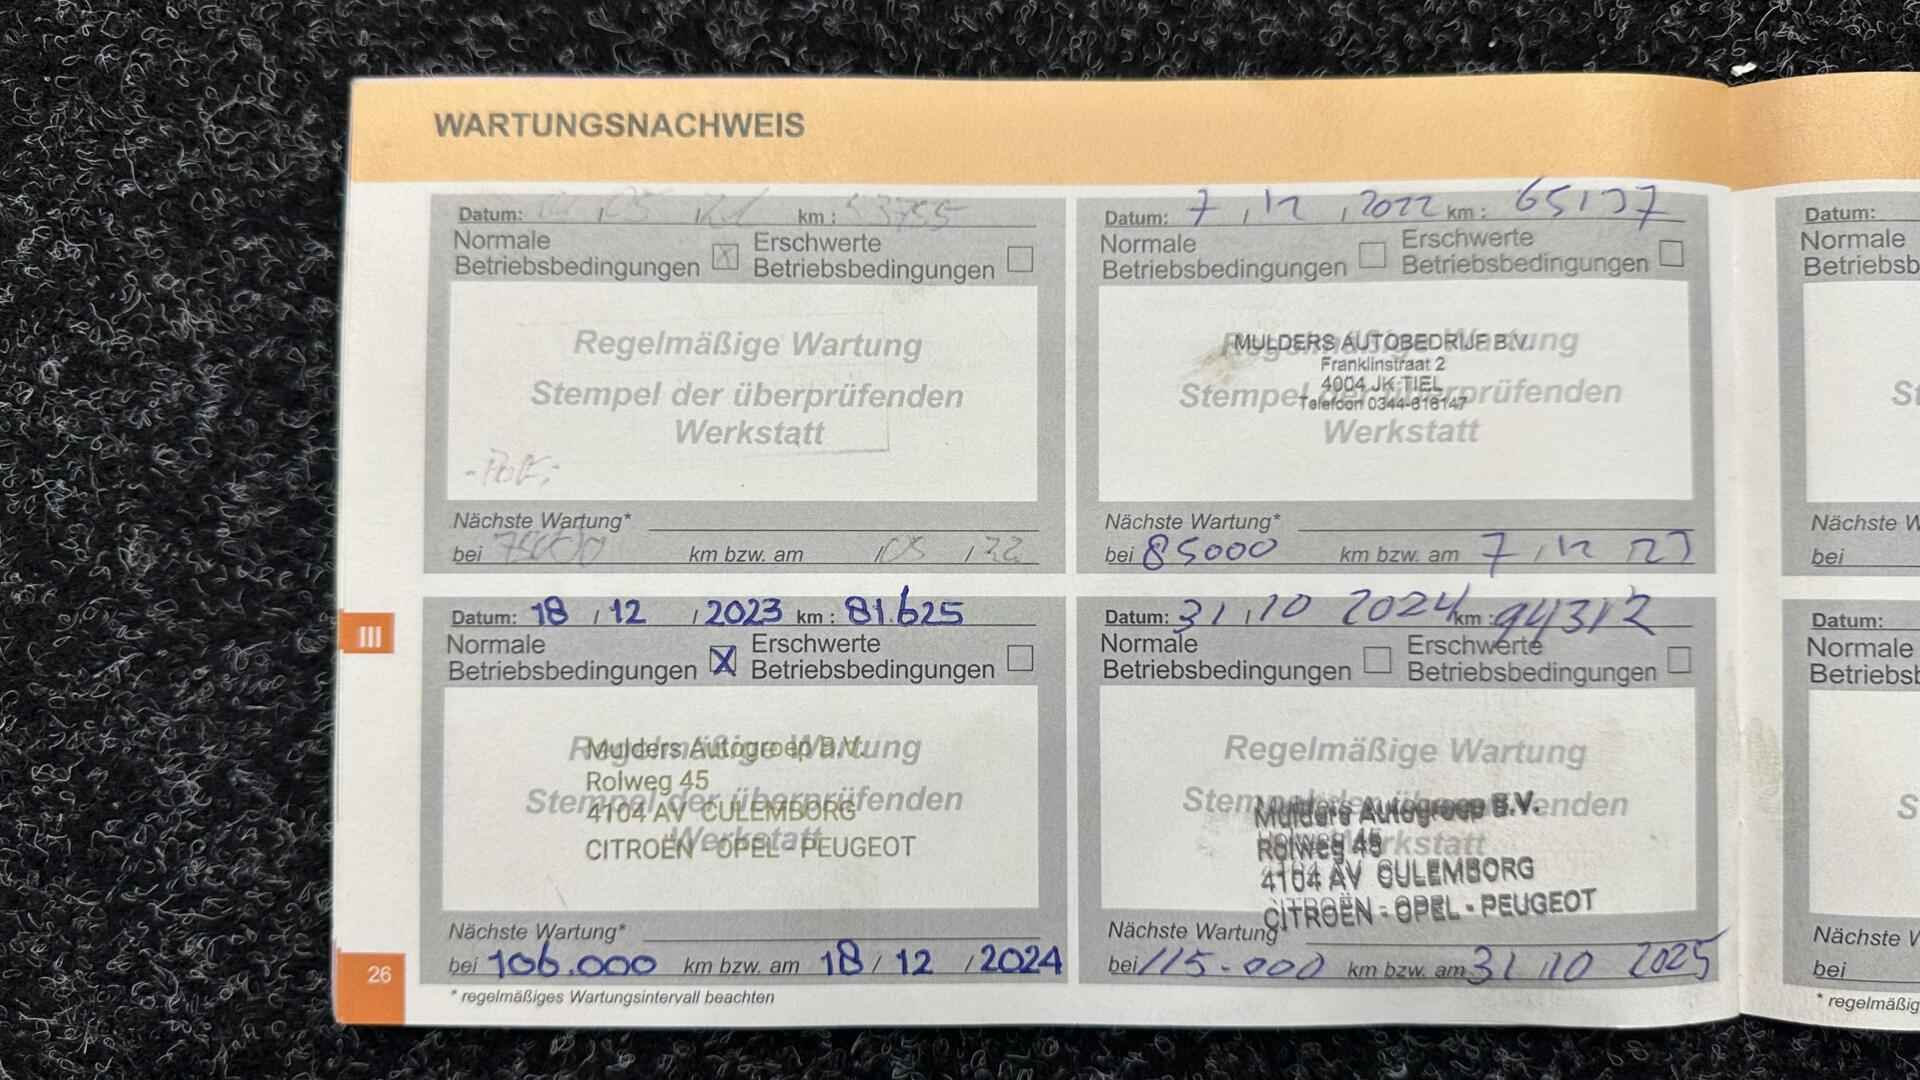 WARTUNGSNACHWEIS
Datum: / 05 / km : 53755
Normale Betriebsbedingungen X Erschwerte Betriebsbedingungen
Regelmäßige Wartung
Stempel der überprüfenden
Werkstatt
Nächste Wartung*
bei 75000 km bzw. am / 05 / 22
Datum: 7 / 12 / 2022 km : 65137
Normale Betriebsbedingungen Erschwerte Betriebsbedingungen
Regelmäßige Wartung
Stempel der überprüfenden
Werkstatt
MULDERS AUTOBEDRIJF B.V.
Franklinstraat 2
4004 JK TIEL
Telefoon 0344-616147
Nächste Wartung*
bei 85000 km bzw. am 7 / 12 23
Datum: 18 / 12 / 2023 km : 81.625
Normale Betriebsbedingungen X Erschwerte Betriebsbedingungen
Regelmäßige Wartung
Stempel der überprüfenden
Werkstatt
Mulders Autogroep B.V.
Rolweg 45
4104 AV CULEMBORG
CITROËN - OPEL - PEUGEOT
Nächste Wartung*
bei 106.000 km bzw. am 18 / 12 / 2024
* regelmäßiges Wartungsintervall beachten
Datum: 31 / 10 2024 km : 94312
Normale Betriebsbedingungen Erschwerte Betriebsbedingungen
Regelmäßige Wartung
Stempel der überprüfenden
Werkstatt
Mulders Autogroep B.V.
Rolweg 45
4104 AV CULEMBORG
CITROËN - OPEL - PEUGEOT
Nächste Wartung*
bei 115.000 km bzw. am 31 / 10 2025
III
26
Datum:
Normale
Betriebsb
St
Nächste W
bei
Datum:
Normale
Betriebsb
S
Nächste W
bei
* regelmäßig